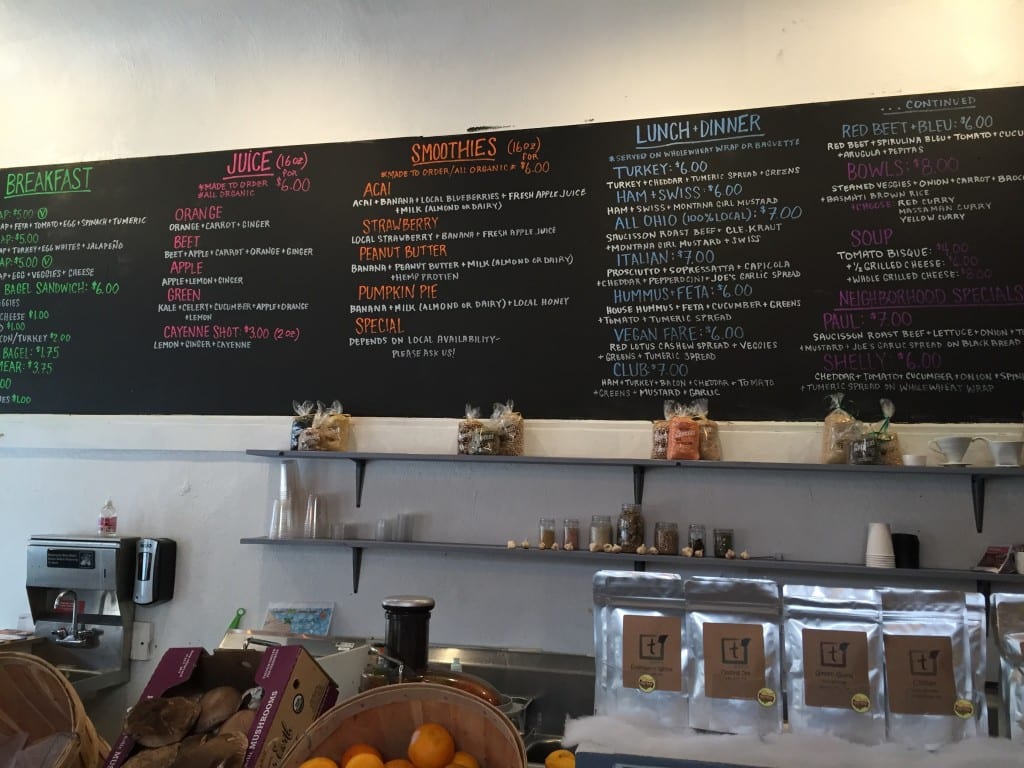 BREAKFAST
AP: $5.00 V
AP + FETA + TOMATO + EGG + SPINACH + TUMERIC
AP: $5.00
AP + TURKEY + EGG WHITES + JALAPEÑO
AP: $5.00 V
AP + EGG + VEGGIES + CHEESE
BAGEL SANDWICH: $6.00
GGIES
CHEESE $1.00
$1.00
CON/TURKEY $2.00
BAGEL: $1.75
MEAR: $3.75
JUICE (16oz) FOR $6.00
*MADE TO ORDER
*ALL ORGANIC
ORANGE
ORANGE + CARROT + GINGER
BEET
BEET + APPLE + CARROT + ORANGE + GINGER
APPLE
APPLE + LEMON + GINGER
GREEN
KALE + CELERY + CUCUMBER + APPLE + ORANGE
+ LEMON
CAYENNE SHOT: $3.00 (2oz)
LEMON + GINGER + CAYENNE
SMOOTHIES (16oz) FOR $6.00
*MADE TO ORDER/ALL ORGANIC*
ACAI
ACAI + BANANA + LOCAL BLUEBERRIES + FRESH APPLE JUICE
+ MILK (ALMOND OR DAIRY)
STRAWBERRY
LOCAL STRAWBERRY + BANANA + FRESH APPLE JUICE
PEANUT BUTTER
BANANA + PEANUT BUTTER + MILK (ALMOND OR DAIRY)
+ HEMP PROTIEN
PUMPKIN PIE
BANANA + MILK (ALMOND OR DAIRY) + LOCAL HONEY
SPECIAL
DEPENDS ON LOCAL AVAILABILITY~
PLEASE ASK US!
LUNCH + DINNER
*SERVED ON WHOLEWHEAT WRAP OR BAGUETTE
TURKEY: $6.00
TURKEY + CHEDDAR + TUMERIC SPREAD + GREENS
HAM + SWISS: $6.00
HAM + SWISS + MONTANA GIRL MUSTARD
ALL OHIO (100% LOCAL): $7.00
SAUCISSON ROAST BEEF + CLE. KRAUT
+ MONTANA GIRL MUSTARD + SWISS
ITALIAN: $7.00
PROSCIUTTO + SOPRESSATTA + CAPICOLA
+ CHEDDAR + PEPPERDCINI + JOE'S GARLIC SPREAD
HUMMUS + FETA: $6.00
HOUSE HUMMUS + FETA + CUCUMBER + GREENS
+ TOMATO + TUMERIC SPREAD
VEGAN FARE: $6.00
RED LOTUS CASHEW SPREAD + VEGGIES
+ GREENS + TUMERIC SPREAD
CLUB: $7.00
HAM + TURKEY + BACON + CHEDDAR + TOMATO
+ GREENS + MUSTARD + GARLIC
...CONTINUED
RED BEET + BLEU: $6.00
RED BEET + SPIRULINA BLEU + TOMATO + CUCU
+ ARUGULA + PEPITAS
BOWLS: $8.00
STEAMED VEGGIES + ONION + CARROT + BROC
+ BASMATI BROWN RICE
*CHOOSE: RED CURRY
MASSAMAN CURRY
YELLOW CURRY
SOUP
TOMATO BISQUE: $4.00
+ ½ GRILLED CHEESE: $6.00
+ WHOLE GRILLED CHEESE: $8.00
NEIGHBORHOOD SPECIALS
PAUL: $7.00
SAUCISSON ROAST BEEF + LETTUCE + ONION + T
+ MUSTARD + JOE'S GARLIC SPREAD ON BLACK BREAD
SHELLY: $6.00
CHEDDAR + TOMATO + CUCUMBER + ONION + SPIN
+ TUMERIC SPREAD ON WHOLEWHEAT WRAP
MUSHROOMS
t
t
t
t